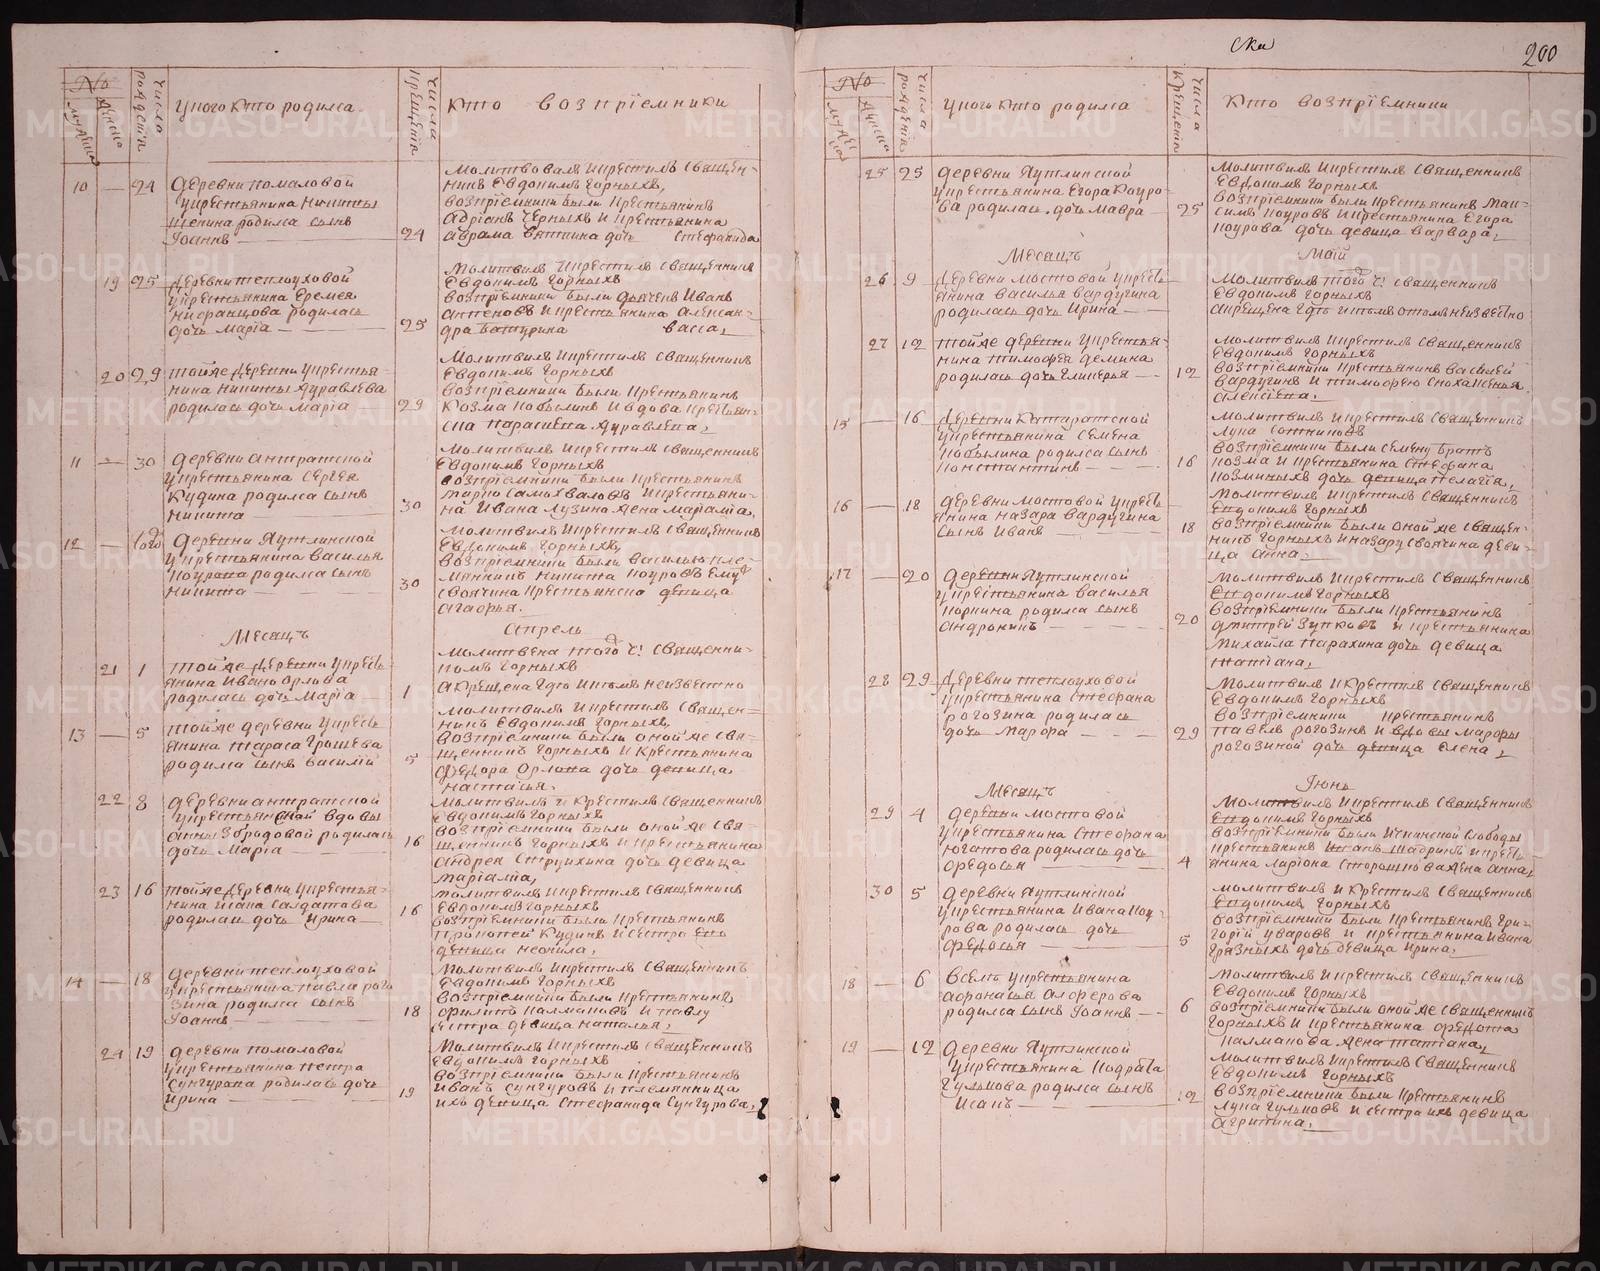 ска
200
№ мужеска женска
числа рождения
У кого кто родился
числа крещения
Кто возприемники
10 — 24
деревни помаловой
у крестьянина Никиты
родился сынъ
Iоаннъ
24
Молитвовалъ и крестилъ Священ-
никъ Евдокимъ Горныхъ,
возприемники были крестьянинъ
Адрiанъ Черныхъ и крестьянина
Аврама Вяткина дочь Стефанида
19 25
деревни теплоуховой
у крестьянина Еремея
родилась
дочь Марiа
25
Молитвилъ и крестилъ Священникъ
Евдокимъ Горныхъ
возприемники были дьячекъ Иванъ
и крестьянина Алексан-
дра Батурина васса,
20 29
той же деревни у крестья-
нина Никиты Журавлева
родилась дочь Марiа
29
Молитвилъ и крестилъ Священникъ
Евдокимъ Горныхъ
возприемники были крестьянинъ
Козма Кобылинъ и вдова крестьян-
ска Параскева Журавлева,
11 — 30
деревни
у крестьянина Сергея
Кудина родился сынъ
Никита
30
Молитвилъ и крестилъ Священникъ
Евдокимъ Горныхъ
возприемники были крестьянинъ
Самохваловъ и крестьяни-
на Ивана Лузина жена Марiамiа,
12 —
деревни Яутлинской
у крестьянина Василья
родился сынъ
Никита
30
Молитвилъ и крестилъ Священникъ
Евдокимъ Горныхъ,
возприемники были Василью пле-
мянникъ Никита ему
своячина крестьянска девица
Агафья.
Месяцъ Апрель
21 1
той же деревни у кресть-
янина Ивана Орлова
родилась дочь Марiа
1
Молитвена того ч: священни-
комъ Горныхъ
а крещена где и кемъ неизвестно
13 — 5
той же деревни у кресть-
янина Тараса Грошева
родился сынъ Василiй
5
Молитвилъ и крестилъ Священ-
никъ Евдокимъ Горныхъ,
возприемники были оной же свя-
щенникъ Горныхъ и крестьянина
Федора Орлова дочь девица
Настасья.
22 8
деревни
у крестьянской вдовы
Анны Збродовой родилась
дочь Марiа
16
Молитвилъ и крестилъ Священникъ
Евдокимъ Горныхъ
возприемники были оной же свя-
щенникъ Горныхъ и крестьянина
Андрея дочь девица
Марiамiа,
23 16
той же деревни у крестья-
нина Исака Салдатова
родилась дочь Ирина
16
Молитвилъ и крестилъ Священникъ
Евдокимъ Горныхъ
возприемники были крестьянинъ
Прокопей Кудинъ и сестра ево
девица Неонила.
14 — 18
деревни теплоуховой
у крестьянина Павла рого-
зина родился сынъ
Iоаннъ
18
Молитвилъ и крестилъ Священникъ
Евдокимъ Горныхъ
возприемники были крестьянинъ
Филипъ Калмаковъ и Павлу
сестра девица Наталья,
24 19
деревни помаловой
у крестьянина Петра
Сунгурова родилась дочь
Ирина
19
Молитвилъ и крестилъ Священникъ
Евдокимъ Горныхъ
возприемники были крестьянинъ
Иванъ Сунгуровъ и племянница
ихъ девица Стефанида Сунгурова,
№ мужеска женска
числа рождения
У кого кто родился
числа крещения
Кто возприемники
25 25
деревни Яутлинской
у крестьянина Егора Коуро-
ва родилась дочь Мавра
25
Молитвилъ и крестилъ Священникъ
Евдокимъ Горныхъ
возприемники были крестьянинъ Мак-
симъ Коуровъ и крестьянина Егора
Коурова дочь девица Варвара,
Месяцъ Маiй
26 9
деревни мостовой у кресть-
янина Василья Вардугина
родилась дочь Ирина
Молитвилъ того ч: священникъ
Евдокимъ Горныхъ
а крещена где и кемъ о томъ неизвестно
27 12
той же деревни у крестья-
нина Тимофея Демина
родилась дочь Гликерья
12
Молитвилъ и крестилъ Священникъ
Евдокимъ Горныхъ
возприемники крестьянинъ Василей
Вардугинъ и Тимофею сноха Ксенья
Алексiева.
15 — 16
деревни
у крестьянина Семена
Кобылина родился сынъ
Константинъ
16
Молитвилъ и крестилъ Священникъ
Лука Сотниковъ
возприемники были Семену братъ
Козма и крестьянина Стефана
дочь девица Пелагiя,
16 — 18
деревни мостовой у кресть-
янина Назара Вардугина
сынъ Иванъ
18
Молитвилъ и крестилъ Священникъ
Евдокимъ Горныхъ
возприемники были оной же священ-
никъ Горныхъ и Назару своячина деви-
ца Анна,
17 — 20
деревни Яутлинской
у крестьянина Василья
родился сынъ
Андроникъ
20
Молитвилъ и крестилъ Священникъ
Евдокимъ Горныхъ
возприемники были крестьянинъ
Дмитрей Зупковъ и крестьянина
Михайла Парахина дочь девица
Татiана,
28 29
деревни теплоуховой
у крестьянина Стефана
рогозина родилась
дочь Марфа
29
Молитвилъ и крестилъ Священникъ
Евдокимъ Горныхъ
возприемники крестьянинъ
Павелъ рогозинъ и вдовы Марфы
рогозиной дочь девица Елена,
Месяцъ Iюнь
29 4
деревни мостовой
у крестьянина Стефана
Югатова родилась дочь
Федосья
4
Молитвилъ и крестилъ Священникъ
Евдокимъ Горныхъ
возприемники были слободы
крестьянинъ Исакъ Шадринъ и кресть-
янина Ларiона Сторошкова жена Анна,
30 5
деревни Яутлинской
у крестьянина Ивана Коу-
рова родилась дочь
Федосья
5
Молитвилъ и крестилъ Священникъ
Евдокимъ Горныхъ
возприемники были крестьянинъ Гри-
горiй Уваровъ и крестьянина Ивана
Грязныхъ дочь девица Ирина.
18 — 6
в селе у крестьянина
Афонасья Алферова
родился сынъ Iоаннъ
6
Молитвилъ и крестилъ Священникъ
Евдокимъ Горныхъ
возприемники были оной же священникъ
Горныхъ и крестьянина Федота
Калмакова жена Татiана,
19 — 12
деревни Яутлинской
у крестьянина Кодрата
Гулькова родился сынъ
Исакъ
12
Молитвилъ и крестилъ Священникъ
Евдокимъ Горныхъ
возприемники были крестьянинъ
Лука Гульковъ и сестра ихъ девица
Агрипина,
METRIKI.GASO-URAL.RU